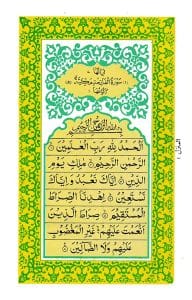 سُورَةُ الْفَاتِحَةِ مَكِّيَّةٌ
بِسْمِ اللّٰهِ الرَّحْمٰنِ الرَّحِيْمِ
اَلْحَمْدُ لِلّٰهِ رَبِّ الْعٰلَمِيْنَ ۙ
الرَّحْمٰنِ الرَّحِيْمِ ۙ مٰلِكِ يَوْمِ
الدِّيْنِ ؕ اِيَّاكَ نَعْبُدُ وَاِيَّاكَ
نَسْتَعِيْنُ ؕ اِهْدِنَا الصِّرَاطَ
الْمُسْتَقِيْمَ ۙ صِرَاطَ الَّذِيْنَ
اَنْعَمْتَ عَلَيْهِمْ ۙ غَيْرِ الْمَغْضُوْبِ
عَلَيْهِمْ وَلَا الضَّآلِّيْنَ